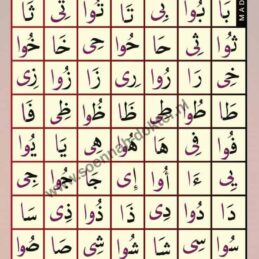 بَا بُوا بِى تَا تُوا تِى ثَا
ثُوا ثِى حَا حُوا حِى خَا خُوا
خِى رَا رُوا رِى زَا زُوا زِى
طَا طُوا طِى ظَا ظُوا ظِى فَا
فُوا فِى هَا هُوا هِى يَا يُوا
يِى ءَا أُوا إِى جَا جُوا جِى
دَا دُوا دِى ذَا ذُوا ذِى سَا
سُوا سِى شَا شُوا شِى صَا صُوا
MAD
www.soennahidoltest.nl